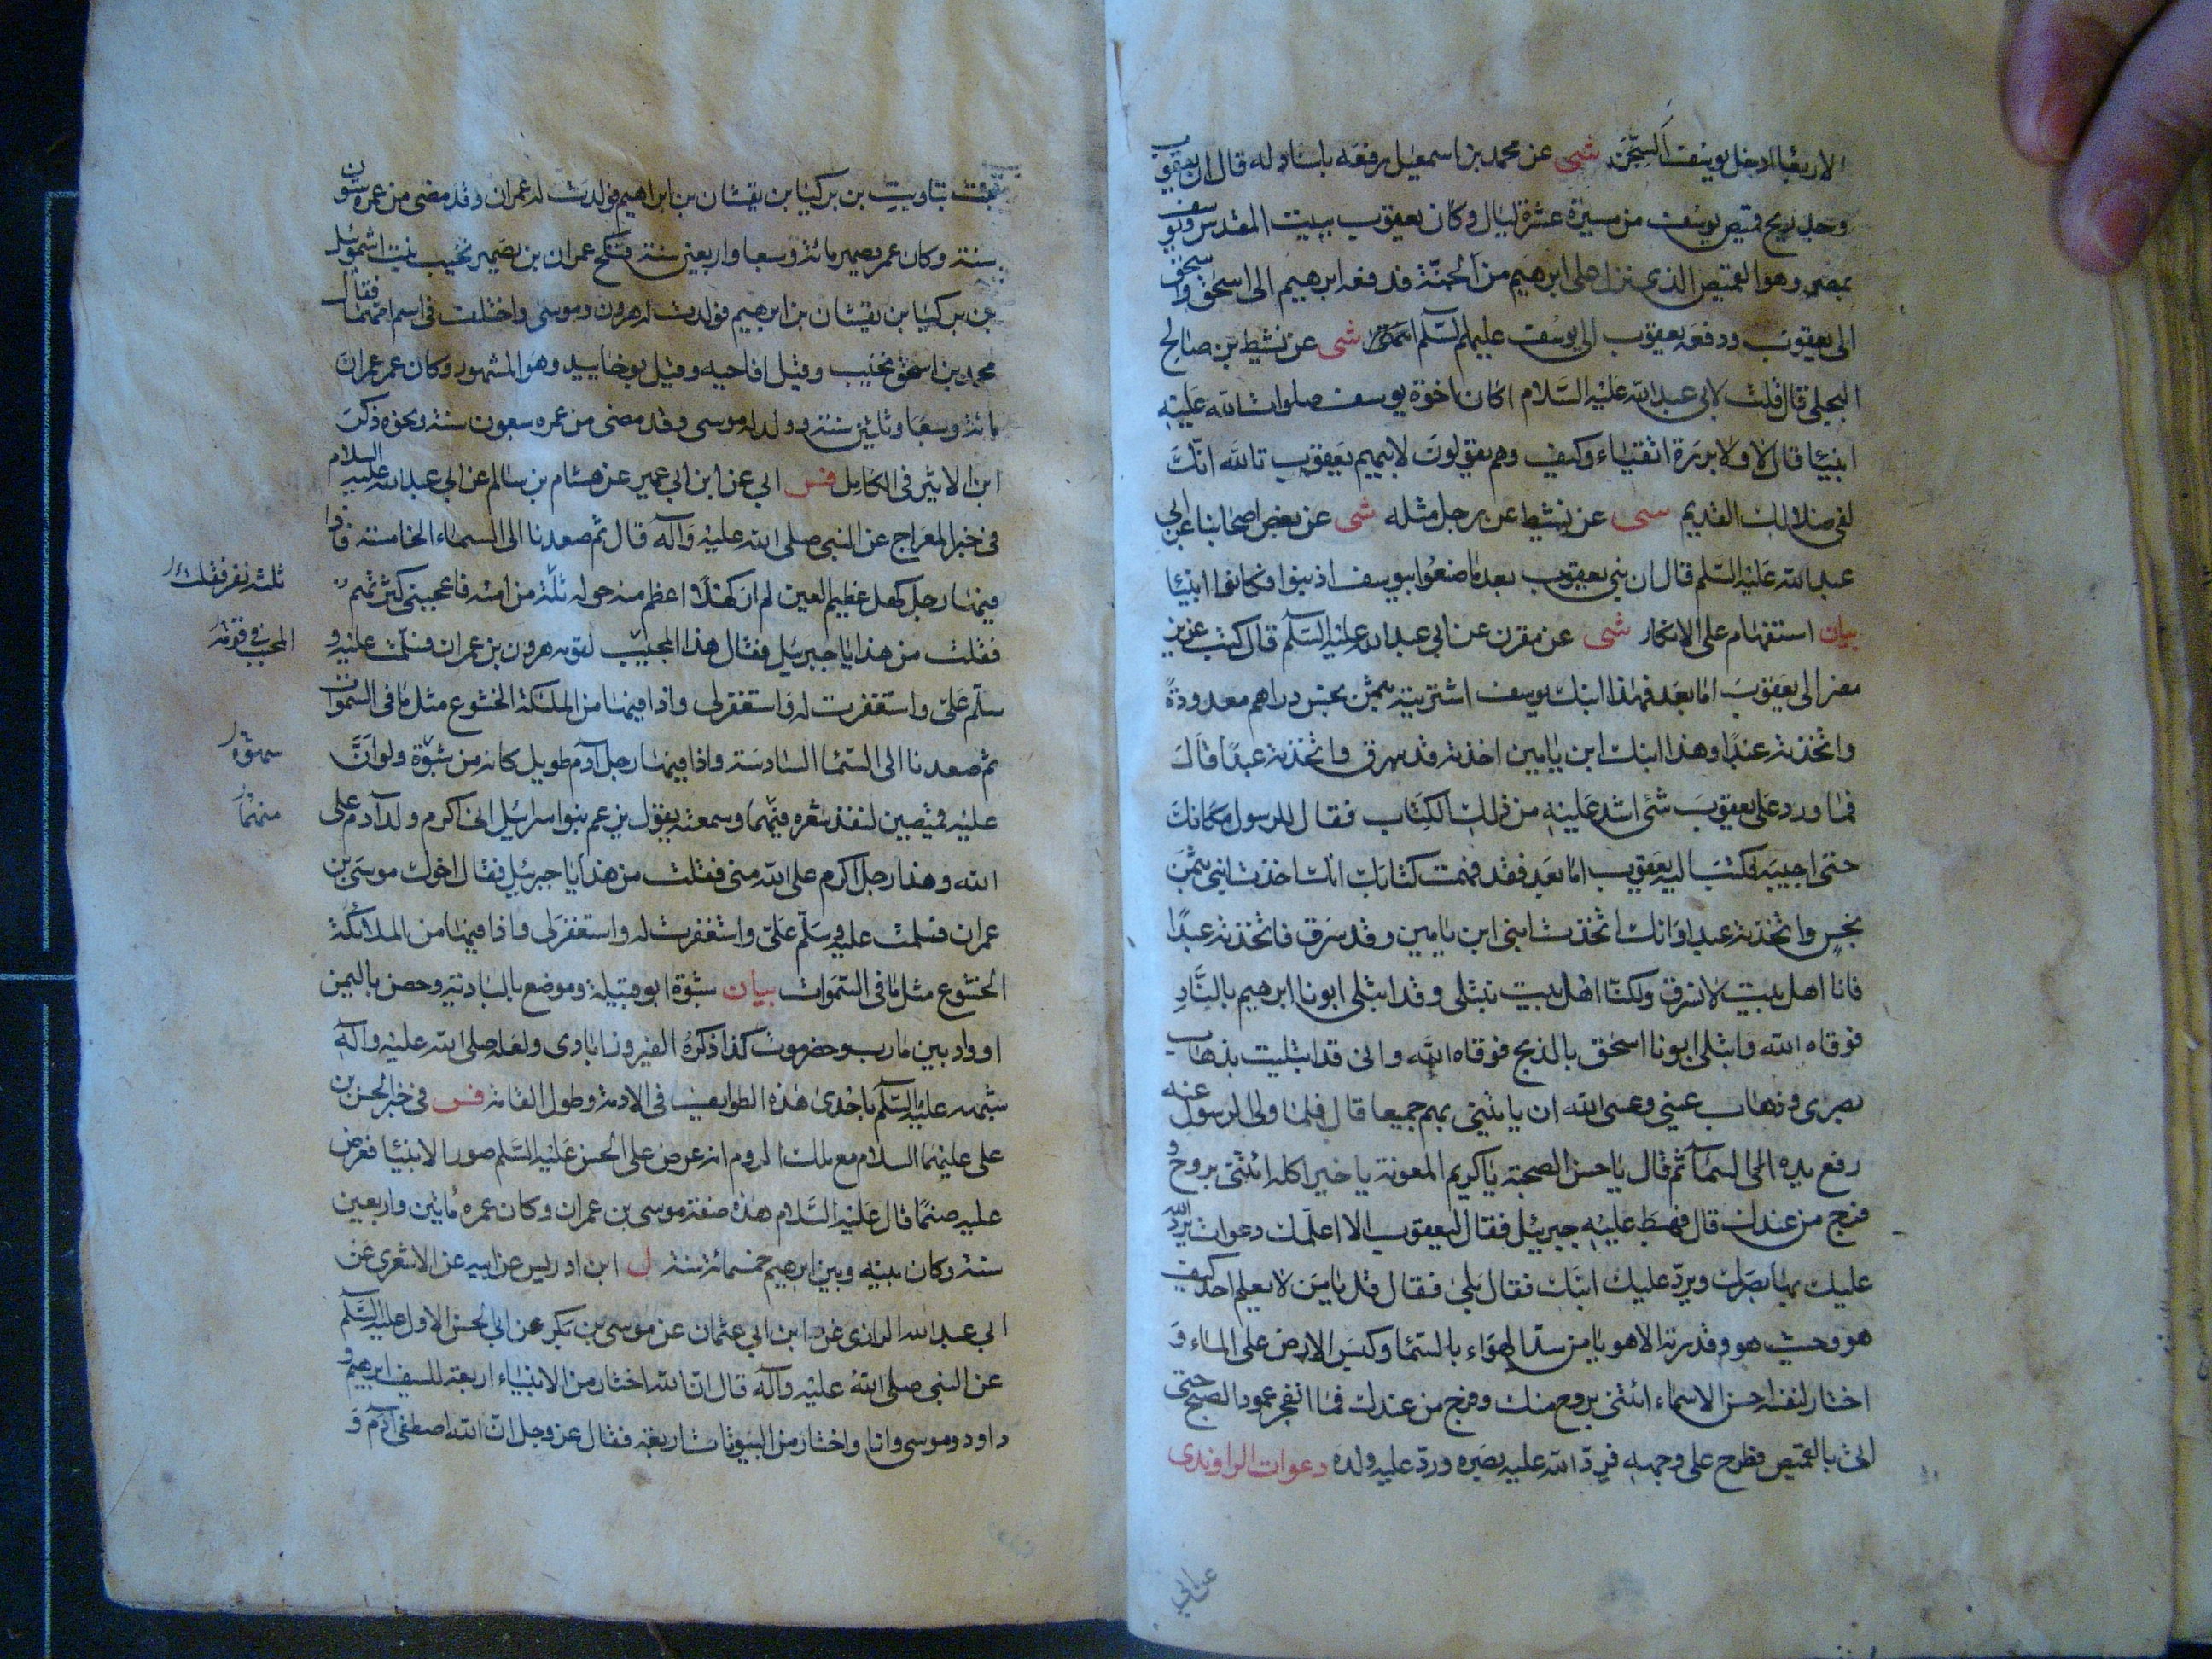 الاربعا ادخل يوسف السجن شى عن محمد بن اسمعيل رفعه باسناد له قال ان يعقوب
وجد ريح قميص يوسف من مسيرة عشرة ليال وكان يعقوب ببيت المقدس ويوسف
بمصر وهو القميص الذى نزل على ابرهيم من الجنة فدفعه ابرهيم الى اسحق واسحق
الى يعقوب ودفعه يعقوب الى يوسف عليهم السلم شى عن نشيط بن صالح
البجلى قال قلت لابى عبد الله عليه السلام اكان اخوة يوسف صلوات الله عليه
انبيا قال لا ولا بررة اتقياء وكيف وهم يقولون لابيهم يعقوب تالله انك
لفى ضلالك القديم شى عن نشيط عن رجل مثله شى عن بعض اصحابنا عن ابى
عبد الله عليه السلم قال ان بنى يعقوب بعد ما صنعوا بيوسف اذنبوا فكانوا انبيا
بيان استفهام على الانكار شى عن مقرن عن ابى عبد الله عليه السلم قال كتب عزيز
مصر الى يعقوب اما بعد فهذا ابنك يوسف اشتريته بثمن بخس دراهم معدودة
واتخذته عبدا وهذا ابنك ابن يامين اخذته قد سرق واتخذته عبدا قال
فما ورد على يعقوب شئ اشد عليه من ذلك الكتاب فقال للرسول مكانك
حتى اجيبه فكتب اليه يعقوب اما بعد فقد فهمت كتابك انك اخذت ابنى بثمن
بخس واتخذته عبدا وانك اتخذت ابنى ابن يامين وقد سرق فاتخذته عبدا
فانا اهل بيت لا نسرق ولكنا اهل بيت نبتلى وقد ابتلى ابونا ابرهيم بالنار
فوقاه الله وابتلى ابونا اسحق بالذبح فوقاه الله وانى قد ابتليت بذهاب
بصرى وذهاب عينى وعسى الله ان ياتينى بهم جميعا قال فلما ولى الرسول عنه
رفع يده الى السما ثم قال يا حسن الصحبة يا كريم المعونة يا خيرا كله ائتنى بروح و
فرج من عندك قال فهبط عليه جبرئيل فقال ليعقوب الا اعلمك دعوات يرد الله
عليك بها بصرك ويرد عليك ابنك فقال بلى فقال قل يا من لا يعلم احد كيف
هو وحيث هو وقدرته الا هو يا من سد الهواء بالسما وكبس الارض على الماء و
اختار لنفسه احسن الاسماء ائتنى بروح منك وفرج من عندك فما انفجر عمود الصبح حتى
اتى بالقميص فطرح على وجهه فرد الله عليه بصره ورد عليه ولده دعوات الراوندى
عن ابى
بن بركيا بن يقشان بن ابراهيم فولدت له عمران وقد مضى من عمره ستون
سنة وكان عمر يصهر مائة وسبعا واربعين سنة فنكح عمران بن يصهر نخيب بنت اشمويل
بن بركيا بن يقشان بن ابرهيم فولدت له هرون وموسى واختلف فى اسم امهما فقال
محمد بن اسحق نخيب وقيل افاحيه وقيل يوخابيد وهو المشهور وكان عمر عمران
مائة وسبعا وثلثين سنة وولد له موسى وقد مضى من عمره سبعون سنة ونحوه ذكر
ابن الاثير فى الكامل فس ابى عن ابن ابى عمير عن هشام بن سالم عن ابى عبد الله عليه السلام
فى خبر المعراج عن النبى صلى الله عليه وآله قال ثم صعدنا الى السماء الخامسة فاذا
فيها رجل كهل عظيم العين لم ار كهلا اعظم منه حوله ثلة من امته فاعجبنى كثرتهم
فقلت من هذا يا جبرئيل فقال هذا المجيب لقومه هرون بن عمران فسلمت عليه و
سلم على واستغفرت له واستغفر لى واذا فيها من الملئكة الخشوع مثل ما فى السموات
ثم صعدنا الى السما السادسة واذا فيها رجل آدم طويل كانه من شبوة ولو ان
عليه قميصين لنفذ شعره فيهما وسمعته يقول يزعم بنو اسرائيل انى اكرم ولد آدم على
الله وهذا رجل اكرم على الله منى فقلت من هذا يا جبرئيل فقال اخوك موسى بن
عمران فسلمت عليه وسلم على واستغفرت له واستغفر لى واذا فيها من الملائكة
الخشوع مثل ما فى السموات بيان شبوة ابو قبيلة وموضع بالبادية وحصن باليمن
او واد بين مارب وحضرموت كذا ذكره الفيروزابادى ولعله صلى الله عليه وآله
شبهه عليه السلم باحدى هذه الطوايف فى الادمة وطول القامة فس فى خبر الحسن بن
على عليهما السلام مع ملك الروم انه عرض على الحسن عليه السلم صور الانبيا فعرض
عليه صنما قال عليه السلام هذه صفة موسى بن عمران وكان عمره مأتين واربعين
سنة وكان بينه وبين ابرهيم خمسمائة سنة ل ابن ادريس عن ابيه عن الاشعرى عن
ابى عبد الله الرازى عن ابن ابى عثمان عن موسى بن بكر عن ابى الحسن الاول عليه السلم
عن النبى صلى الله عليه وآله قال ان الله اختار من الانبياء اربعة للسيف ابرهيم و
داود وموسى وانا واختار من البيوتات اربعة فقال عز وجل ان الله اصطفى آدم و
المحب فى قومه
منهما